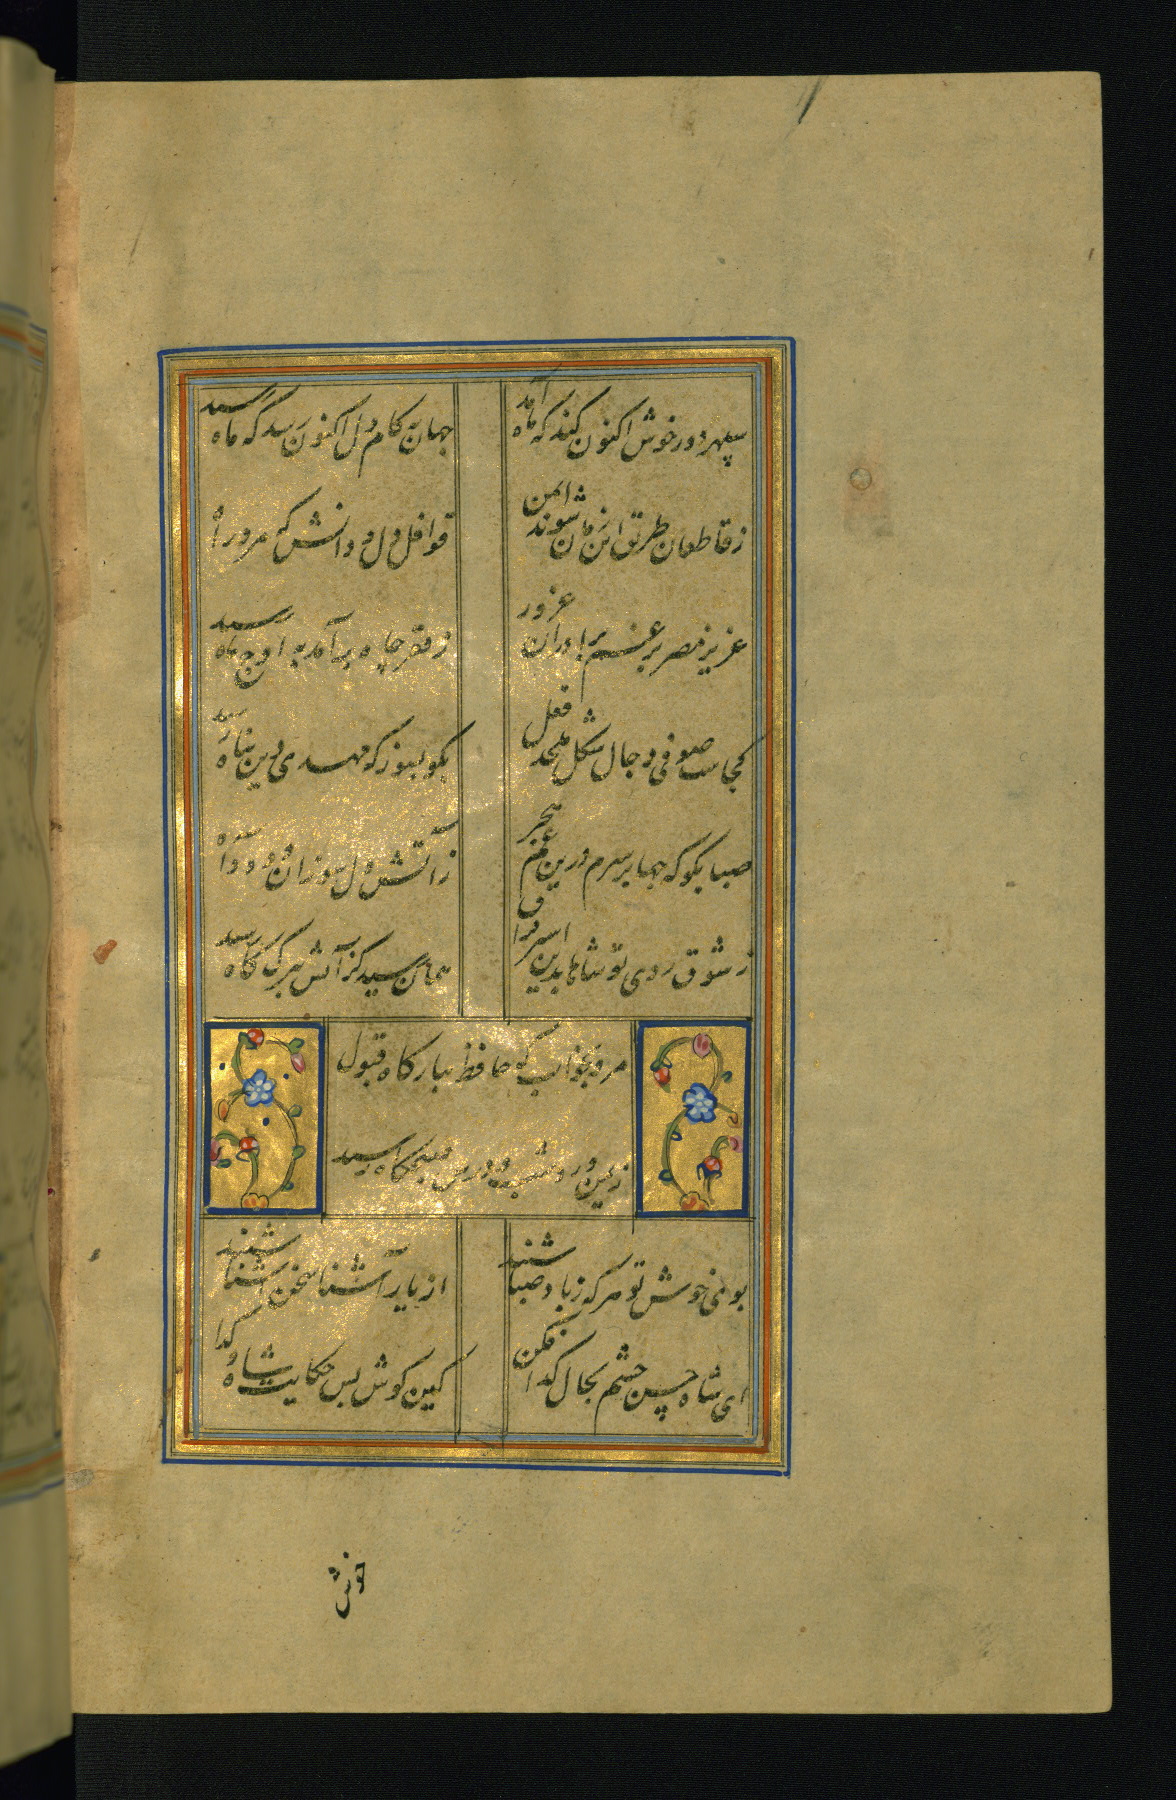 سپهر دور خوش اکنون کند که ماه آمد
جهان به کام دل اکنون رسد که شاه رسید
ز قاطعان طریق این زمان شوند ایمن
قوافل دل و دانش که مرد راه رسید
عزیز مصر برغم برادران غیور
ز قعر چاه برآمد به اوج ماه رسید
کجاست صوفی دجال شکل ملحد فعل
بگو بسوز که مهدی دین پناه رسید
صبا بگو که چها بر سرم درین غم هجر
ز آتش دل سوزان و دود آه رسید
ز شوق روی تو شاها بدین اسیر فراق
همان رسید کز آتش ببرک کاه رسید
مرو بخواب که حافظ ببارگاه قبول
ز یمن ورد شب و درس صبحگاه رسید
بوی خوش تو هر که ز باد صبا شنید
از یار آشنا سخن آشنا شنید
ای شاه حسن چشم بحال گدا فکن
کین گوش بس حکایت شاه و گدا شنید